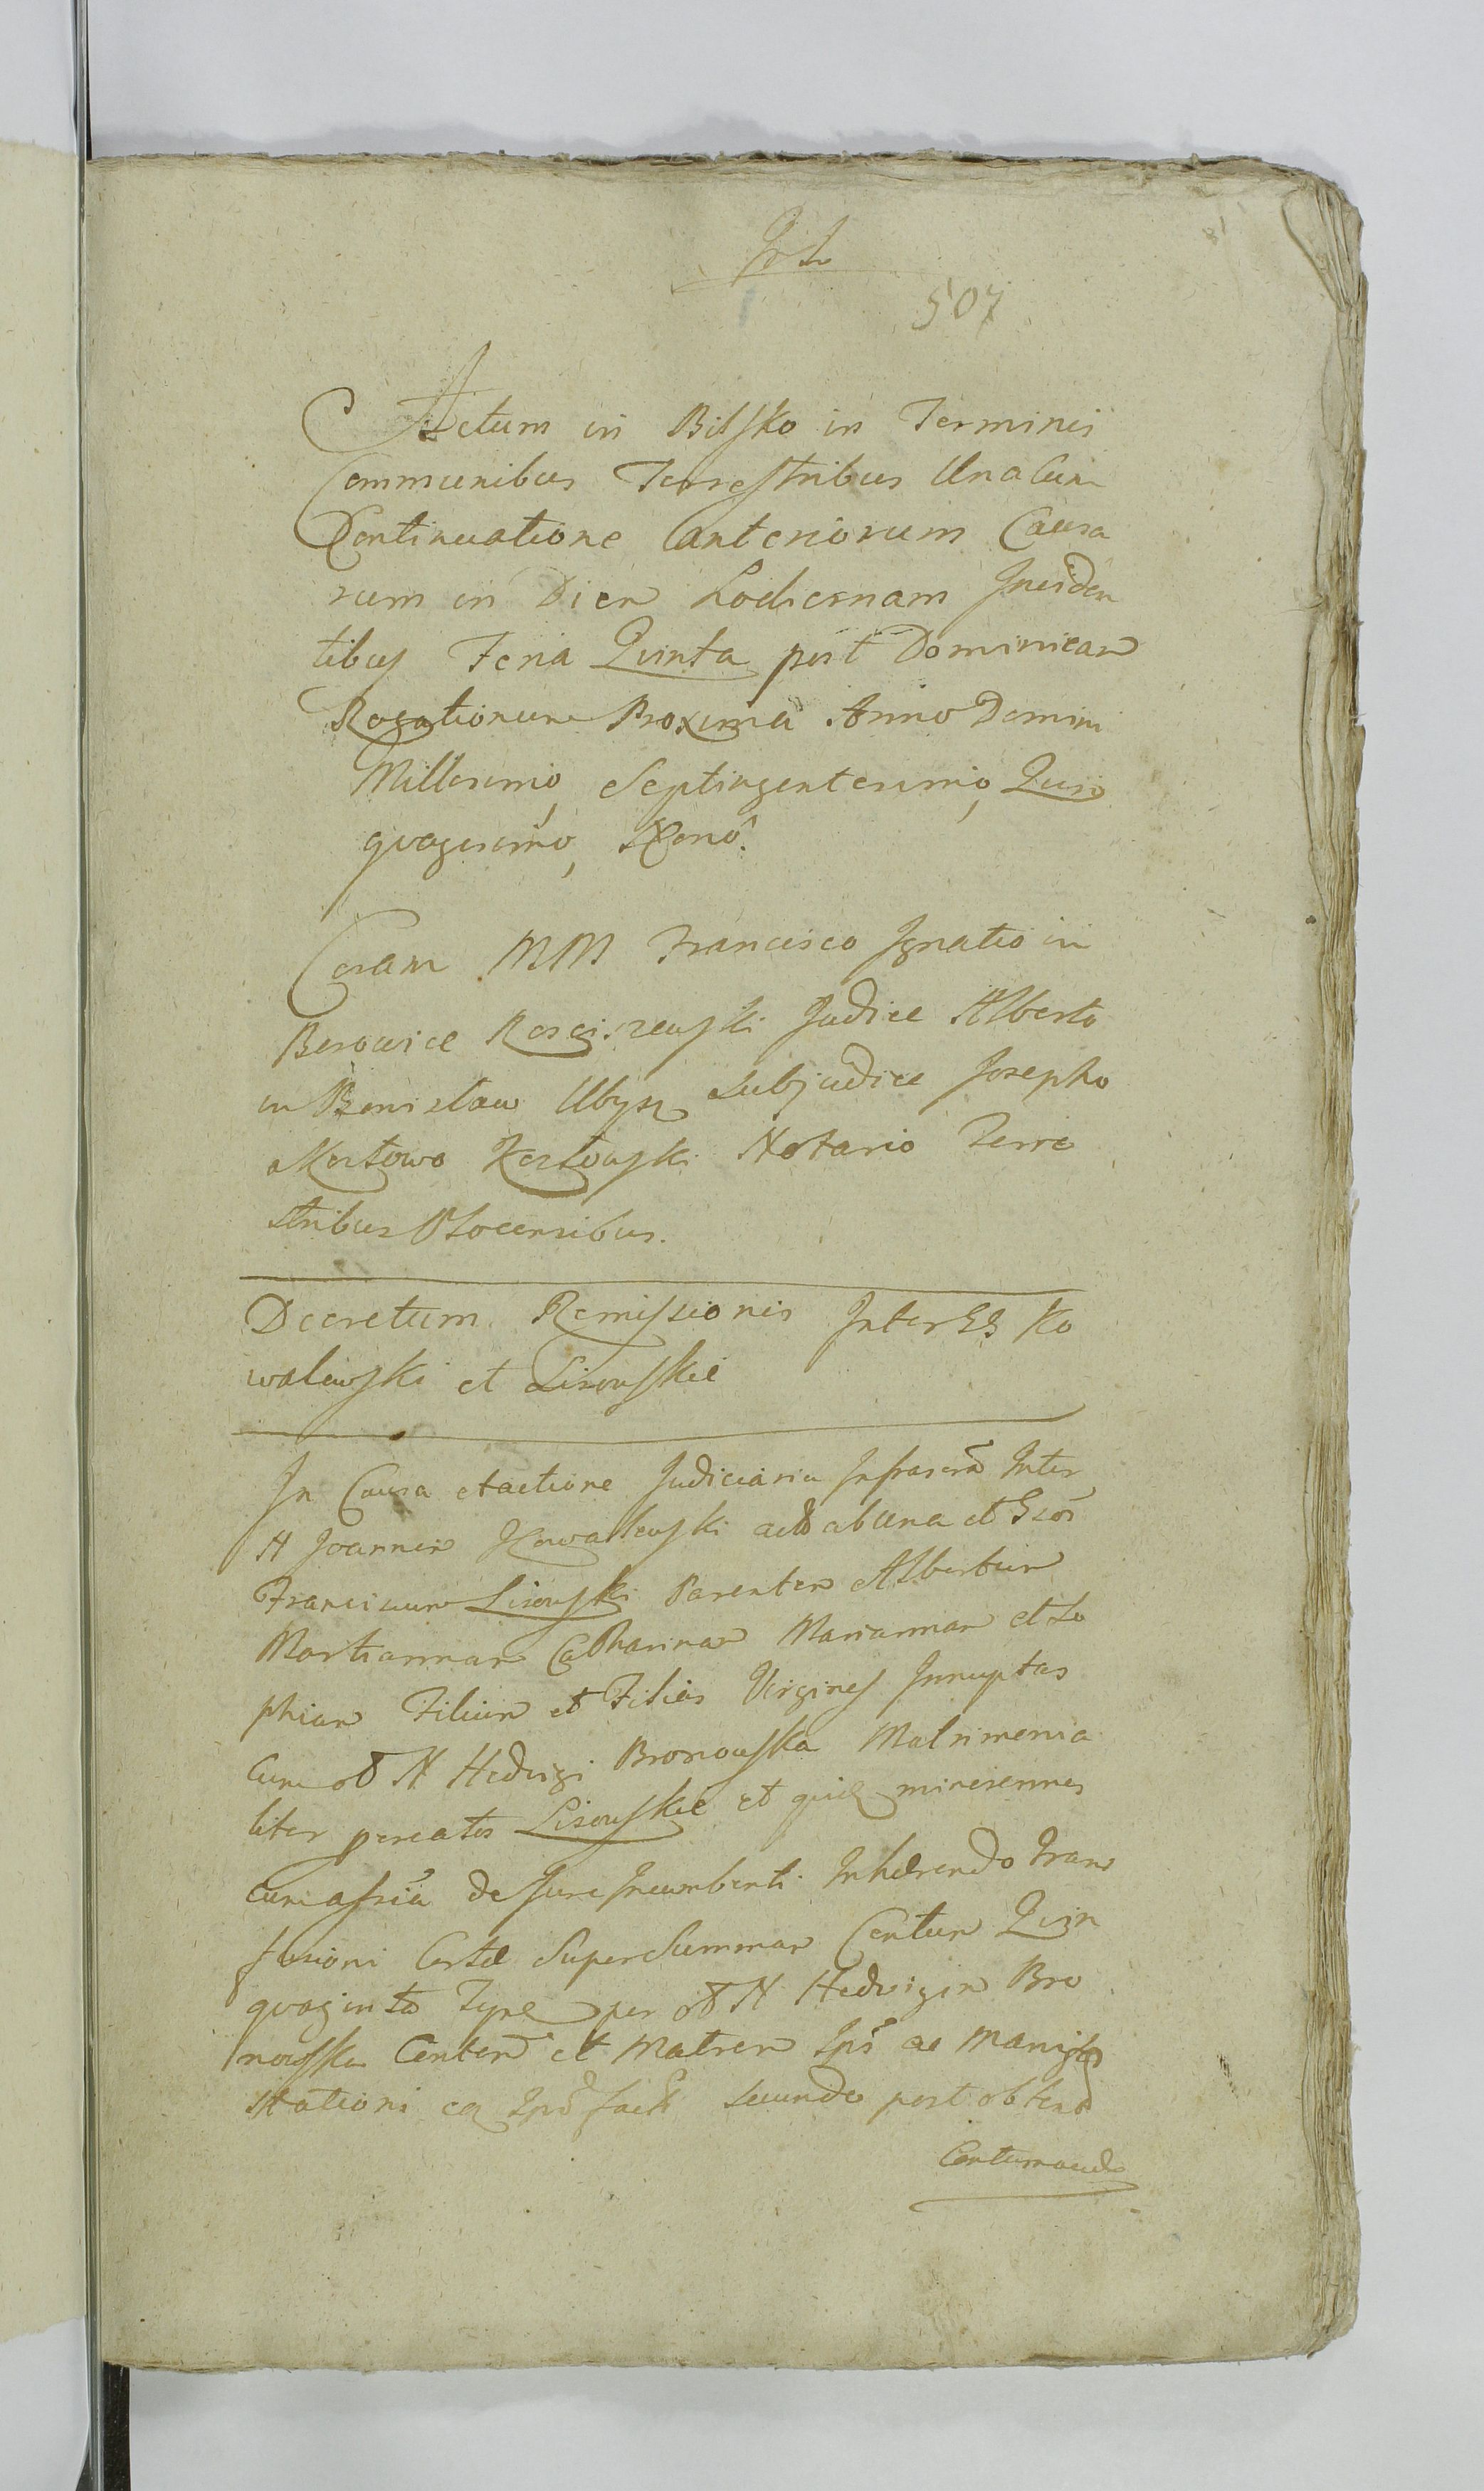 507
Actum in Bilsko in Terminis
Communibus Terrestribus Una Cum
Continuatione Anteriorum Causa
rum in Diem Hodiernam Inciden
tibus Feria Quinta post Dominicam
Rogationum Proxima Anno Domini
Millesimo, Septingentesimo, Quin
quagesimo, Nono.
Coram MM Francisco Ignatio in
Borowice Rosciszewski Judice Alberto
in Bonislaw Ubysz Subjudice Josepho
Notario Terre
stribus Plocensibus.
Decretum Remissionis Inter GG Ko
walewski et Lisowskie
In Causa et actione Judiciaria Infrascr Inter
N Joannem Kowalewski act ab una et
Franciscum Lisowski Parentem Albertum
Martiannam Catharinam Mariannam et So
phiam Filium et Filias Virgines Innuptas
Cum ol N Hedvigi Bronowska Matrimonia
liter procreatos Lisowskie et quidem minorennes
cum assria de Jure Incumbenti Inhaerendo Tran
fusioni Certae Super Summam Centum Quin
quaginta Tynf per ol N Hedvigim Bro
nowska Conthor et Matrem Ips ac Manife
stationi eq Ips fact secundo post obtent
Contumaci